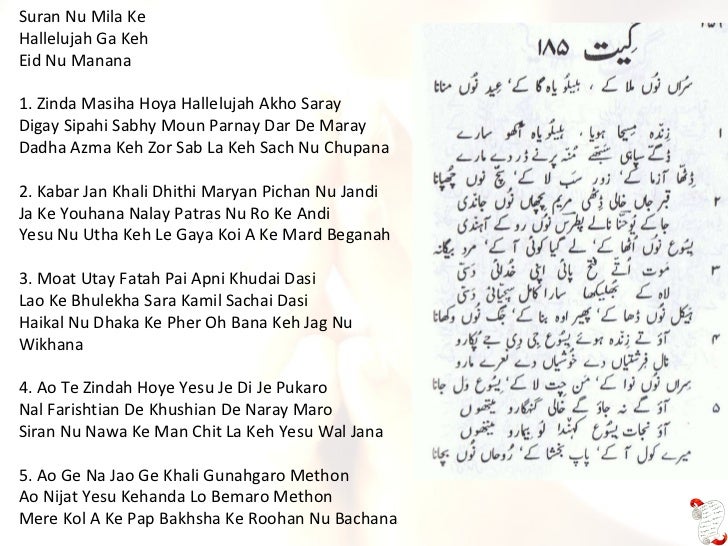 Suran Nu Mila Ke
Hallelujah Ga Keh
Eid Nu Manana
1. Zinda Masiha Hoya Hallelujah Akho Saray
Digay Sipahi Sabhy Moun Parnay Dar De Maray
Dadha Azma Keh Zor Sab La Keh Sach Nu Chupana
2. Kabar Jan Khali Dhithi Maryan Pichan Nu Jandi
Ja Ke Youhana Nalay Patras Nu Ro Ke Andi
Yesu Nu Utha Keh Le Gaya Koi A Ke Mard Beganah
3. Moat Utay Fatah Pai Apni Khudai Dasi
Lao Ke Bhulekha Sara Kamil Sachai Dasi
Haikal Nu Dhaka Ke Pher Oh Bana Keh Jag Nu
Wikhana
4. Ao Te Zindah Hoye Yesu Je Di Je Pukaro
Nal Farishtian De Khushian De Naray Maro
Siran Nu Nawa Ke Man Chit La Keh Yesu Wal Jana
5. Ao Ge Na Jao Ge Khali Gunahgaro Methon
Ao Nijat Yesu Kehanda Lo Bemaro Methon
Mere Kol A Ke Pap Bakhsha Ke Roohan Nu Bachana
گیت ۱۸۵
سُراں نوں ملا کے، ہیلیلُویاہ گا کے، عید نوں منانا
۱ زندہ مسیحا ہویا، ہیلیلُویاہ آکھو سارے
ڈگے سپاہی سبھے مُنہ پرنے ڈر دے مارے
ڈاڈھا آزما کے، زور سب لا کے، سچ نوں چھپانا
۲ قبر جاں خالی ڈِٹھی مریم پچھاں نوں جاندی
جا کے یُوحنا نالے پطرس نوں رو کے آہندی
یسُوع نوں اُٹھا کے، لے گیا کوئی آ کے، مرد بیگانہ
۳ موت اُتے فتح پائی اپنی خُدائی دسّی
لاہ کے بُھلیکھا سارا کامل سچیائی دسّی
ہیکل نوں ڈھا کے، پھیر اوہ بنا کے، جگ نوں وکھانا
۴ آؤ تے زندہ ہوئے یسُوع جی دی جے پُکارو
نال فرشتیاں دے خوشیاں دے نعرے مارو
سِراں نوں نوا کے، من چِت لا کے، یسُوع ول جانا
۵ آؤ گے نہ جاؤ گے خالی گنہگارو میتھوں
آؤ نجات یسُوع کہندا لَو بیمارو میتھوں
میرے کول آ کے، پاپ بخشا کے، رُوحاں نوں بچانا